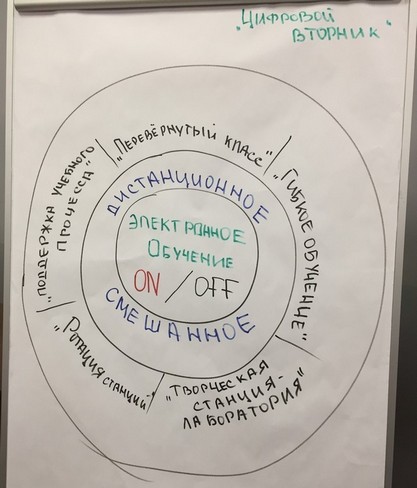 "ЦИФРОВОЙ
ВТОРНИК"
"ПЕРЕВЁРНУТЫЙ КЛАСС"
"ГИБКОЕ ОБУЧЕНИЕ"
"ТВОРЧЕСКАЯ
СТАНЦИЯ-
ЛАБОРАТОРИЯ"
"РОТАЦИЯ СТАНЦИЙ"
"ПОДДЕРЖКА УЧЕБНОГО
ПРОЦЕССА"
ДИСТАНЦИОННОЕ
ЭЛЕКТРОННОЕ
ОБУЧЕНИЕ
ON / OFF
СМЕШАННОЕ